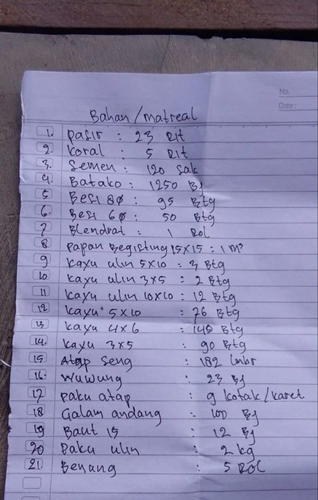 No.
Date:
Bahan/matreal
1. pasir : 23 Rit
2. Koral : 5 Rit
3. Semen : 120 Sak
4. Batako : 1250 Bj
5 Besi 8ø : 95 Btg
6. Besi 6ø : 50 Btg
7 Blendrat : 1 Rol
8 papan Begisting 15x15 : 1 m³
9 kayu ulin 5x10 : 3 Btg
10 kayu ulin 3x5 : 2 Btg
11 kayu ulin 10x10 : 12 Btg
12 kayu 5x10 : 76 Btg
13 kayu 4x6 : 145 Btg
14. kayu 3x5 : 90 Btg
15 Atap Seng : 182 lmbr
16. Wuwung : 23 Bj
17 paku atap : 9 kotak/karet
18 Galam andang : 100 Bj
19 Baut 15 : 12 Bj
20 Paku ulin : 2 kg
21 Benang : 5 Rol